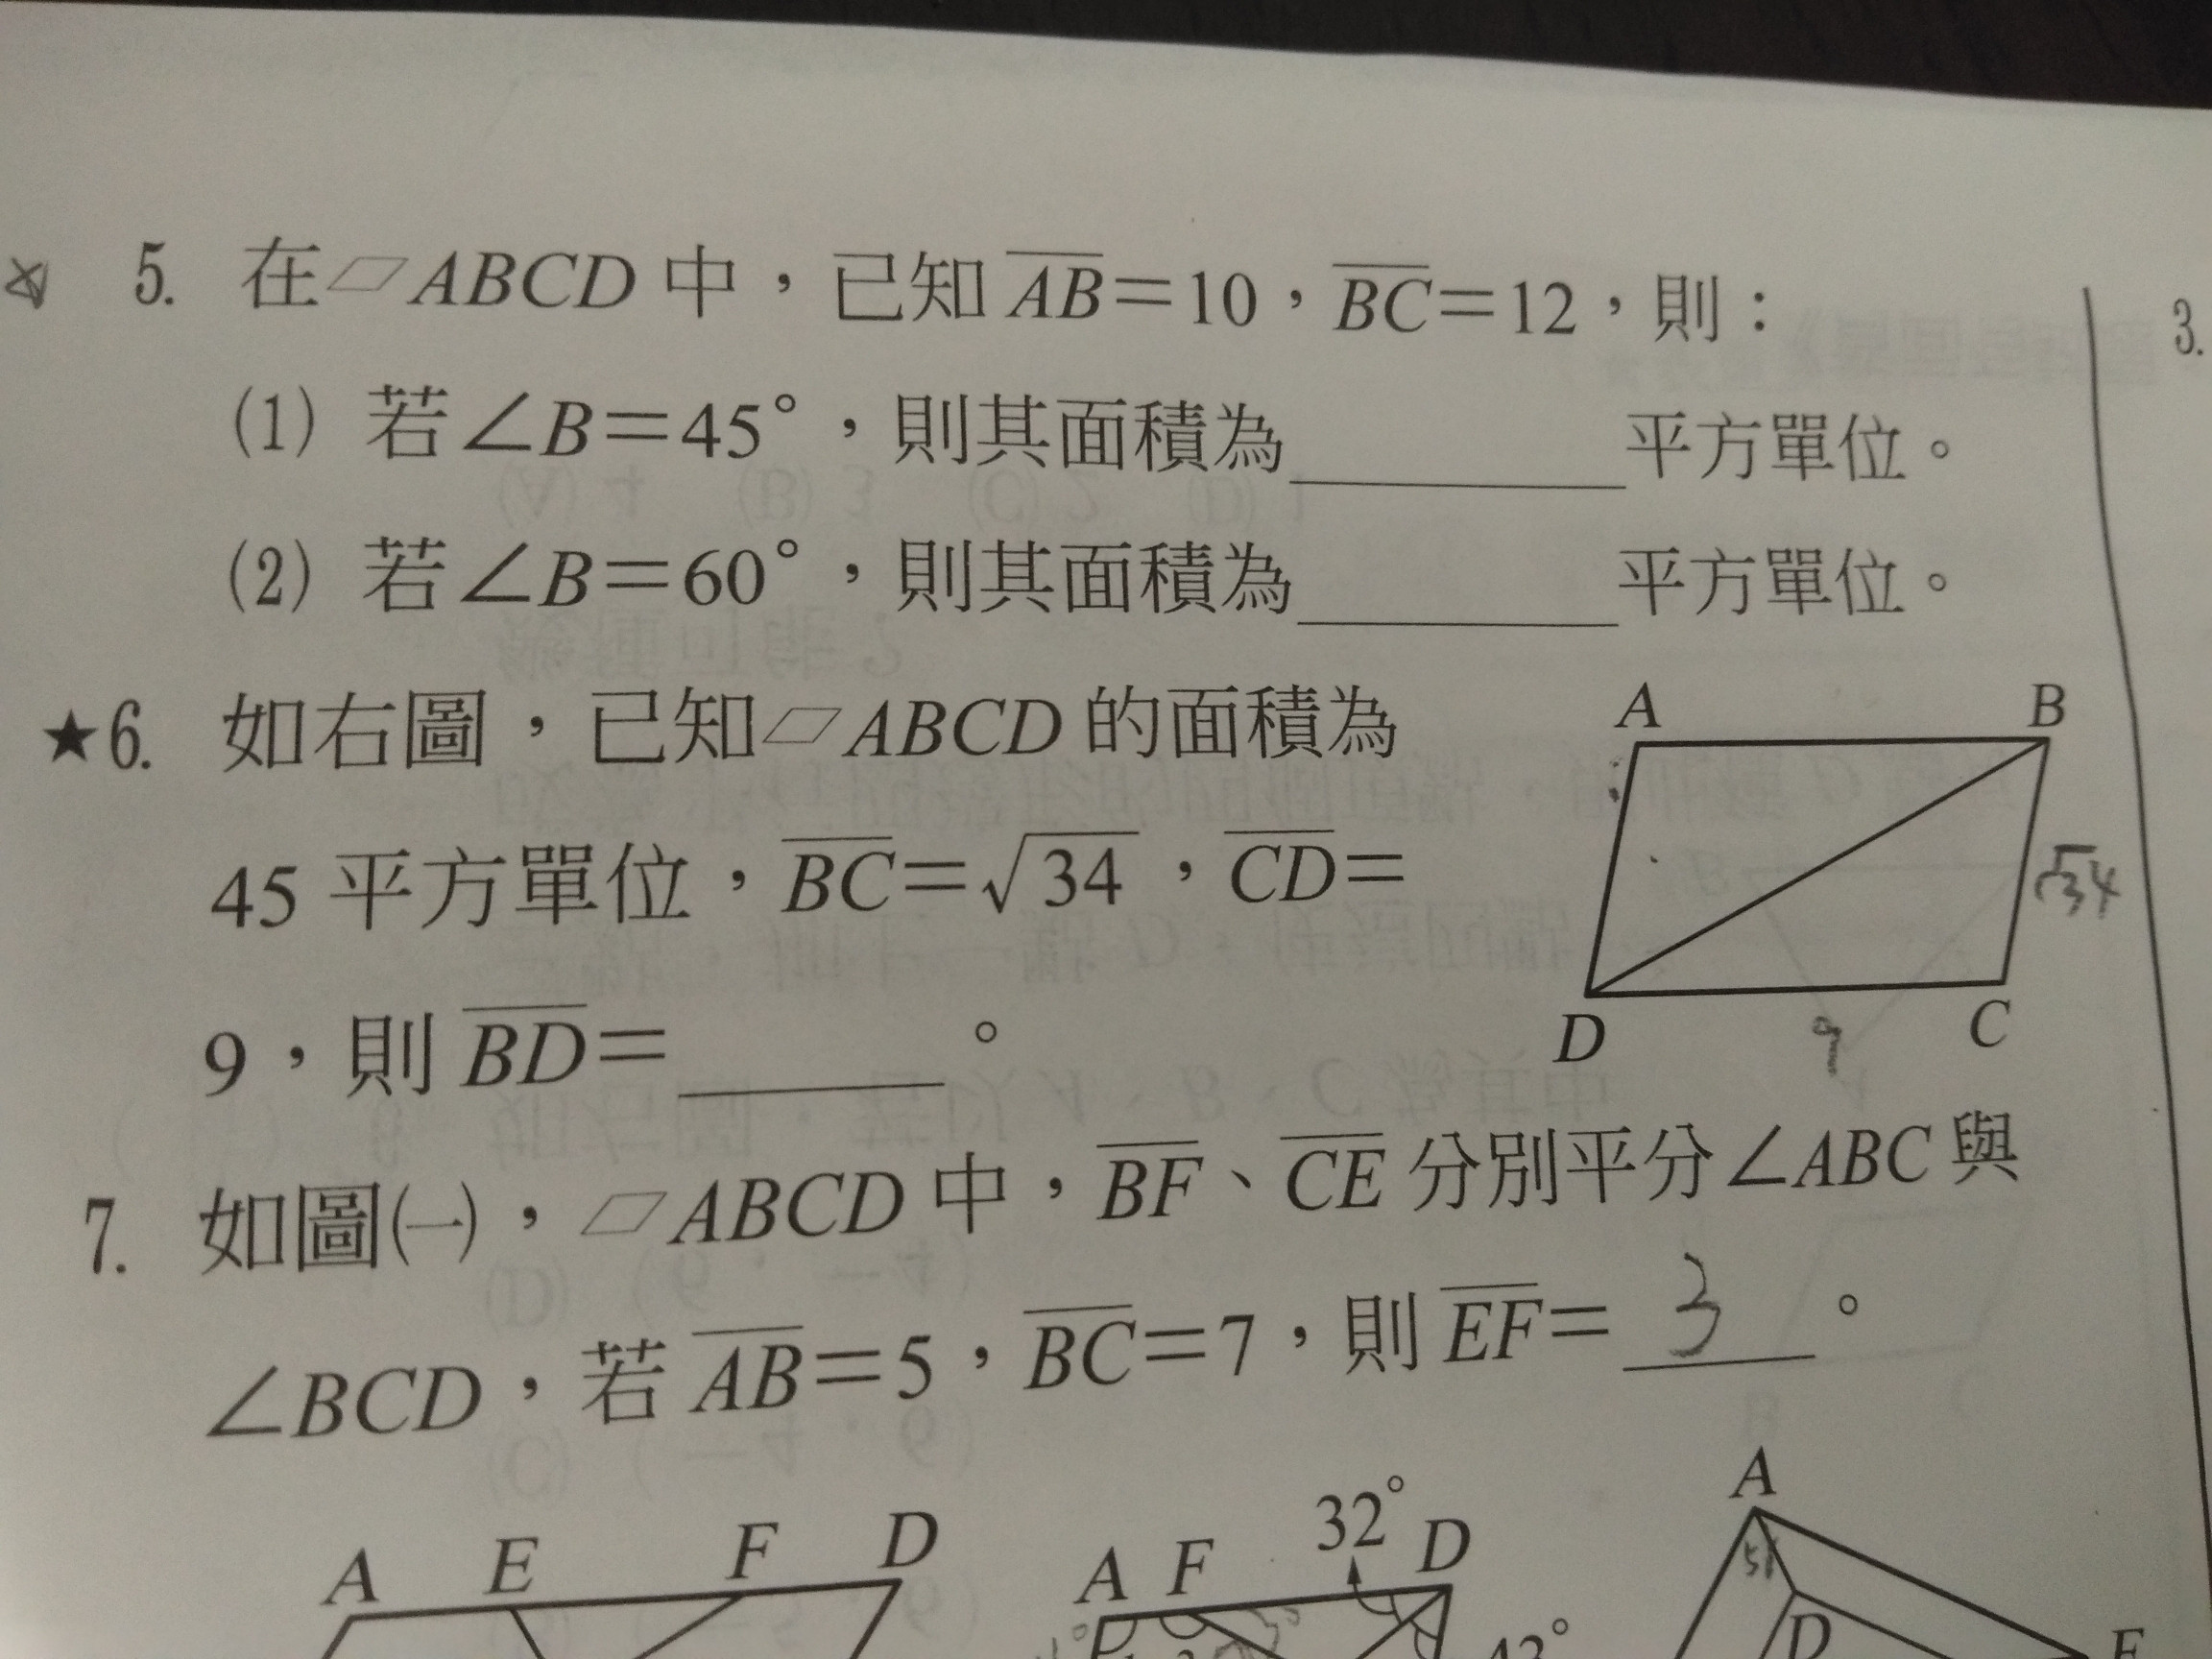 5. 在▱ABCD 中，已知 \overline{AB}=10，\overline{BC}=12，則：
3.
(1) 若∠B=45°，則其面積為______平方單位。
(2) 若∠B=60°，則其面積為______平方單位。
★6. 如右圖，已知▱ABCD 的面積為
45 平方單位，\overline{BC}=√34，\overline{CD}=
9，則 \overline{BD}=______。
A B
√34
D C
9
7. 如圖(一)，▱ABCD 中，\overline{BF}、\overline{CE} 分別平分∠ABC 與
∠BCD，若 \overline{AB}=5，\overline{BC}=7，則 \overline{EF}= 3 。
A E F D
A F 32° D
43°
A
D